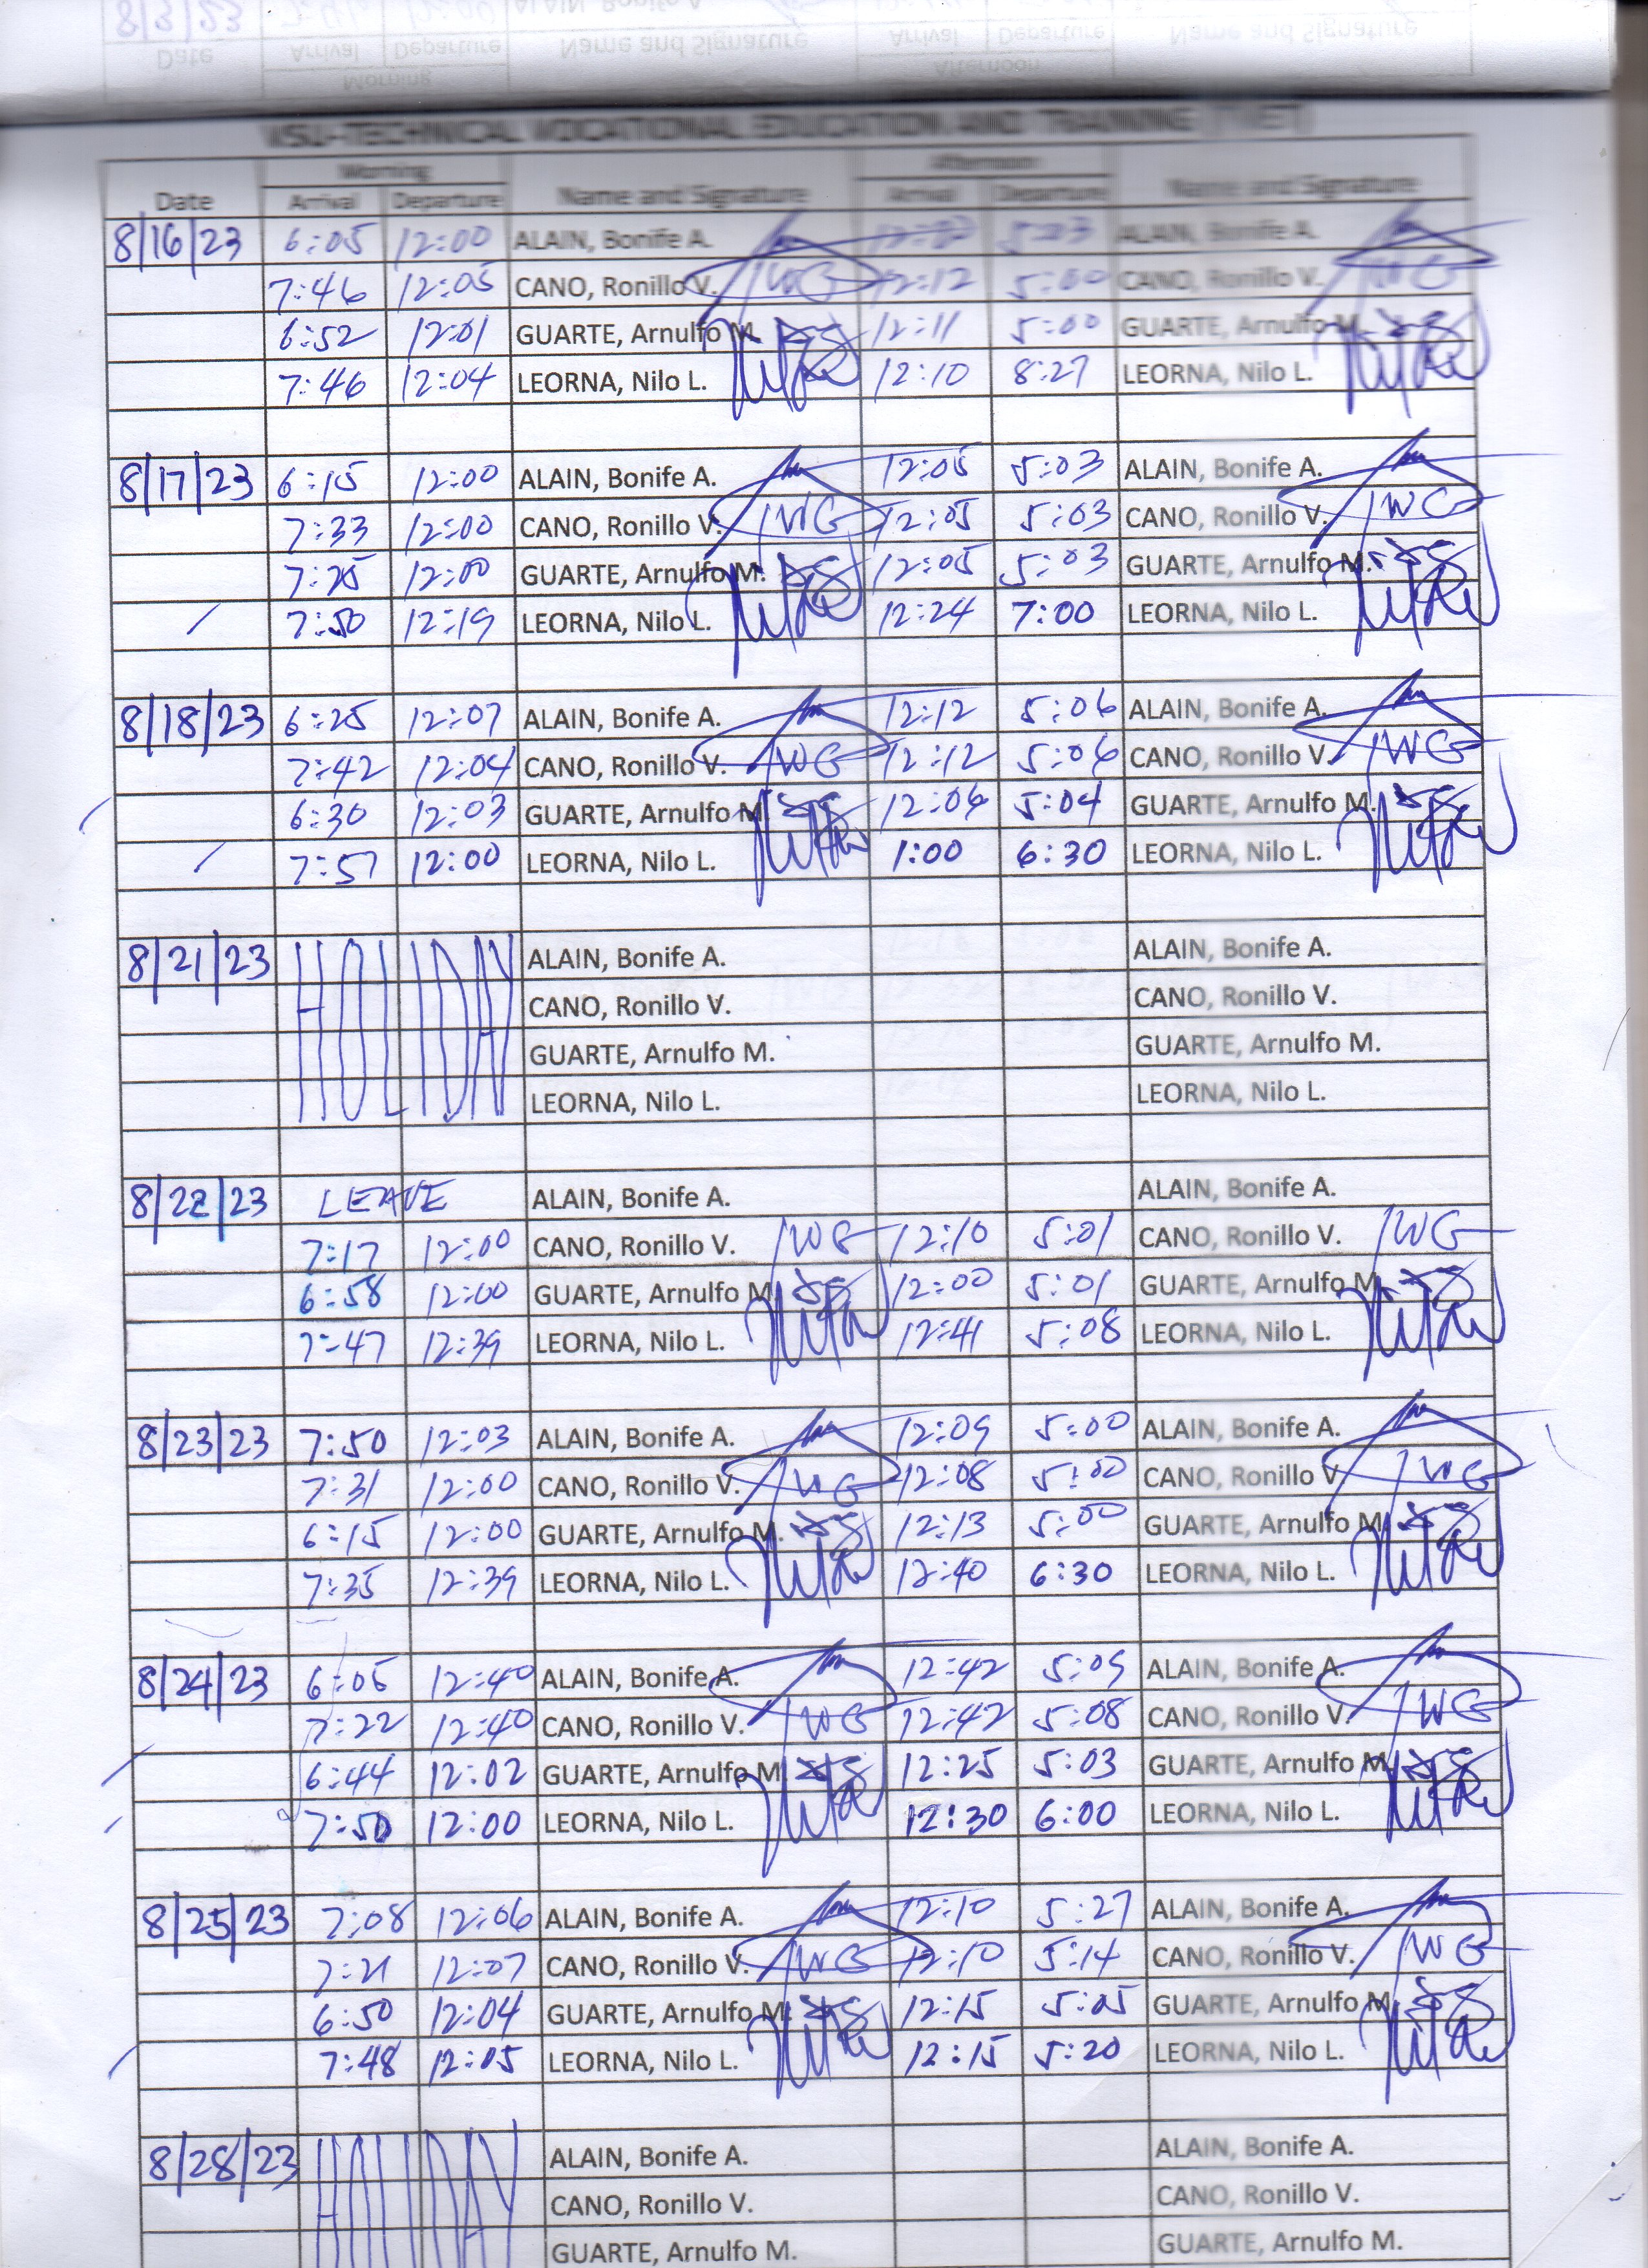 VSU-TECHNICAL VOCATIONAL EDUCATION AND TRAINING (TVET)
Morning Afternoon
Date Arrival Departure Name and Signature Arrival Departure Name and Signature
8/16/23 6:05 12:00 ALAIN, Bonife A. 5:03 ALAIN, Bonife A.
7:46 12:05 CANO, Ronillo V. 12:12 5:00 CANO, Ronillo V.
6:52 12:01 GUARTE, Arnulfo M. 12:11 5:00 GUARTE, Arnulfo M.
7:46 12:04 LEORNA, Nilo L. 12:10 8:27 LEORNA, Nilo L.
8/17/23 6:15 12:00 ALAIN, Bonife A. 12:05 5:03 ALAIN, Bonife A.
7:33 12:00 CANO, Ronillo V. 12:05 5:03 CANO, Ronillo V.
7:25 12:00 GUARTE, Arnulfo M. 12:05 5:03 GUARTE, Arnulfo M.
7:50 12:19 LEORNA, Nilo L. 12:24 7:00 LEORNA, Nilo L.
8/18/23 6:25 12:07 ALAIN, Bonife A. 12:12 5:06 ALAIN, Bonife A.
7:42 12:04 CANO, Ronillo V. 12:12 5:06 CANO, Ronillo V.
6:30 12:03 GUARTE, Arnulfo M. 12:06 5:04 GUARTE, Arnulfo M.
7:57 12:00 LEORNA, Nilo L. 1:00 6:30 LEORNA, Nilo L.
8/21/23 HOLIDAY ALAIN, Bonife A. ALAIN, Bonife A.
CANO, Ronillo V. CANO, Ronillo V.
GUARTE, Arnulfo M. GUARTE, Arnulfo M.
LEORNA, Nilo L. LEORNA, Nilo L.
8/22/23 LEAVE ALAIN, Bonife A. ALAIN, Bonife A.
7:17 12:00 CANO, Ronillo V. 12:10 5:01 CANO, Ronillo V.
6:58 12:00 GUARTE, Arnulfo M. 12:00 5:01 GUARTE, Arnulfo M.
7:47 12:39 LEORNA, Nilo L. 12:41 5:08 LEORNA, Nilo L.
8/23/23 7:50 12:03 ALAIN, Bonife A. 12:09 5:00 ALAIN, Bonife A.
7:31 12:00 CANO, Ronillo V. 12:08 5:00 CANO, Ronillo V.
6:15 12:00 GUARTE, Arnulfo M. 12:13 5:00 GUARTE, Arnulfo M.
7:35 12:39 LEORNA, Nilo L. 12:40 6:30 LEORNA, Nilo L.
8/24/23 6:05 12:40 ALAIN, Bonife A. 12:42 5:09 ALAIN, Bonife A.
7:22 12:40 CANO, Ronillo V. 12:42 5:08 CANO, Ronillo V.
6:44 12:02 GUARTE, Arnulfo M. 12:25 5:03 GUARTE, Arnulfo M.
7:50 12:00 LEORNA, Nilo L. 12:30 6:00 LEORNA, Nilo L.
8/25/23 7:08 12:06 ALAIN, Bonife A. 12:10 5:27 ALAIN, Bonife A.
7:21 12:07 CANO, Ronillo V. 12:10 5:14 CANO, Ronillo V.
6:50 12:04 GUARTE, Arnulfo M. 12:15 5:05 GUARTE, Arnulfo M.
7:48 12:05 LEORNA, Nilo L. 12:15 5:20 LEORNA, Nilo L.
8/28/23 HOLIDAY ALAIN, Bonife A. ALAIN, Bonife A.
CANO, Ronillo V. CANO, Ronillo V.
GUARTE, Arnulfo M. GUARTE, Arnulfo M.